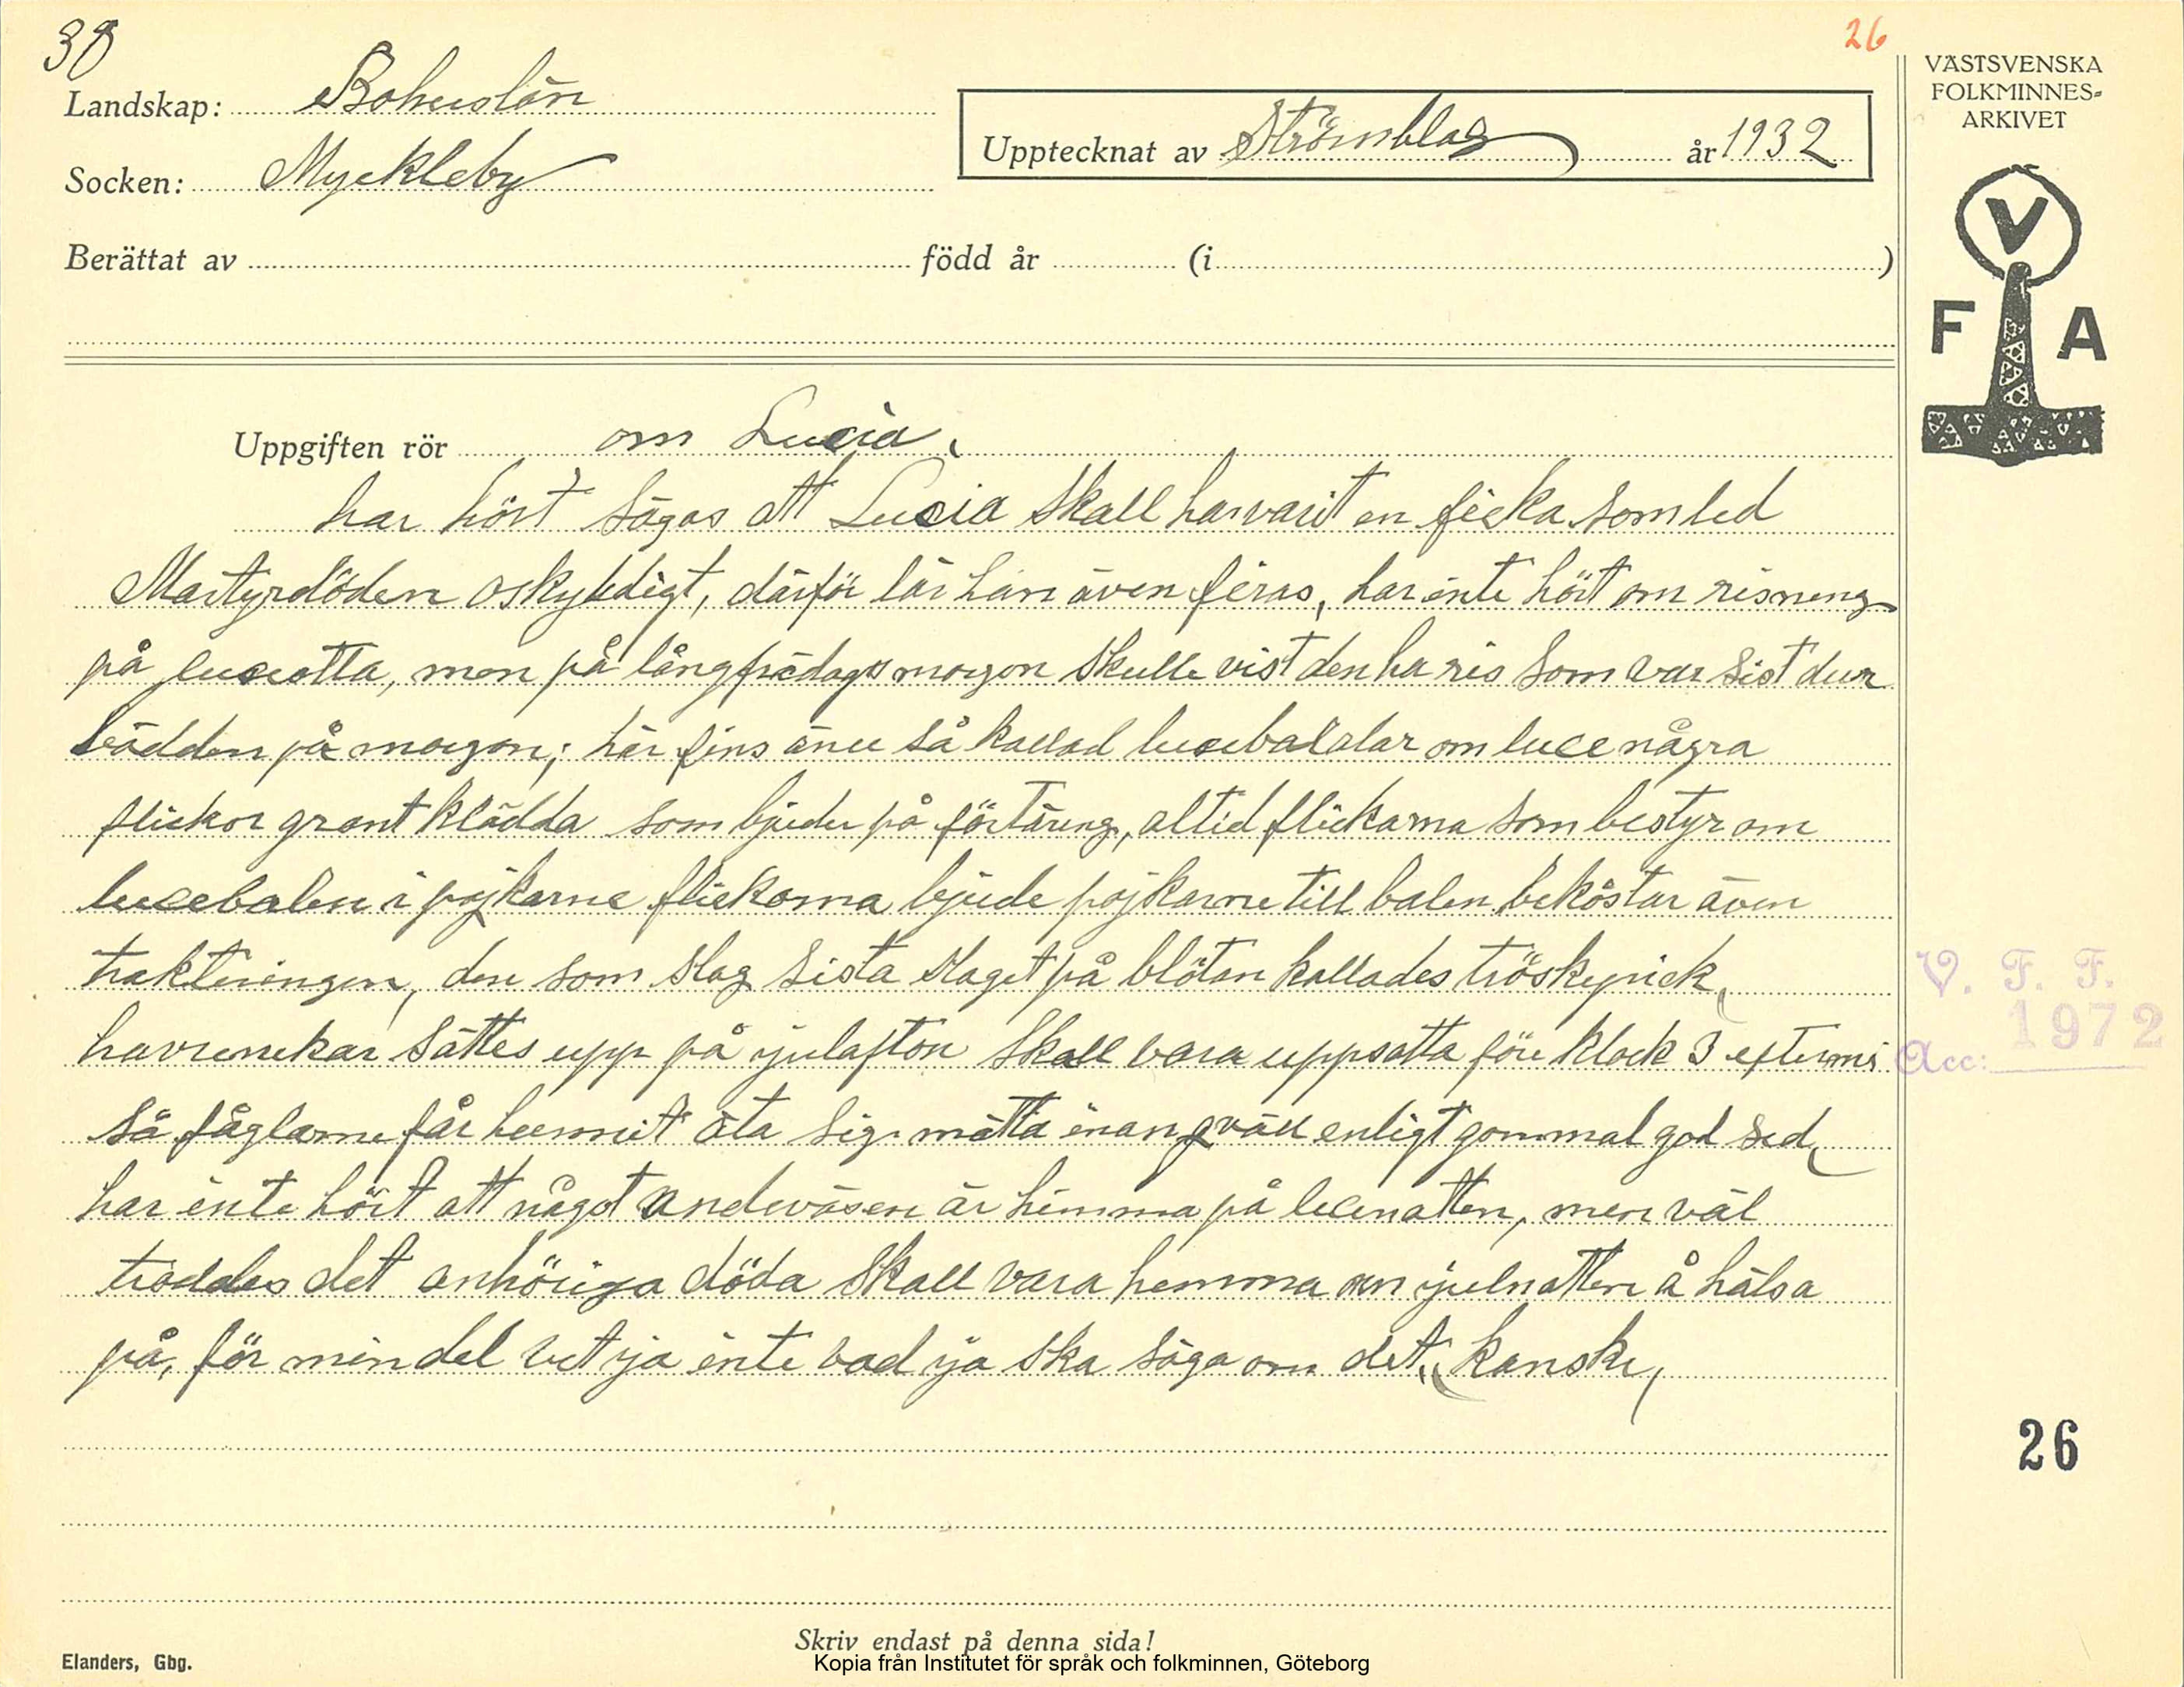 38
26
Landskap: Bohuslän
Socken: Myckleby
Upptecknat av Strömblad år 1932
Berättat av född år (i )
Uppgiften rör om Lucia,
har hört sägas att Lucia skall ha varit en flicka som led
Martyrdöden oskyldigt, därför lär hän även firas, har inte hört om risning
på luciotta, men på långfredagsmorgon skulle vist den ha ris som var sist
bädden på morgon; här fins änu så kallad lucebalalar om luce några
flickor grant klädda som bjuder på förtäring, altid flickarna som bestyr om
lucebalen i pojkarne flickorna bjude pojkarne till balen bekåstar även
trakteringen, den som slog sista slaget på blöten kallades
havrenekar sättes upp på julafton skall vara uppsatta före klock 3 eftermi
så fåglarne får hunnit äta sig mätta inan qväll enligt gammal god sed,
har inte hört att något andeväsen är hemma på lucenatten, men väl
troddes det anhöriga döda skall vara hemma om julnatten å hälsa
på, för min del vet ja inte vad ja ska säga om det, kanske,
Skriv endast på denna sida!
Kopia från Institutet för språk och folkminnen, Göteborg
Elanders, Gbg.
VÄSTSVENSKA
FOLKMINNES-
ARKIVET
V
F A
V. F. F.
1972
Acc:
26